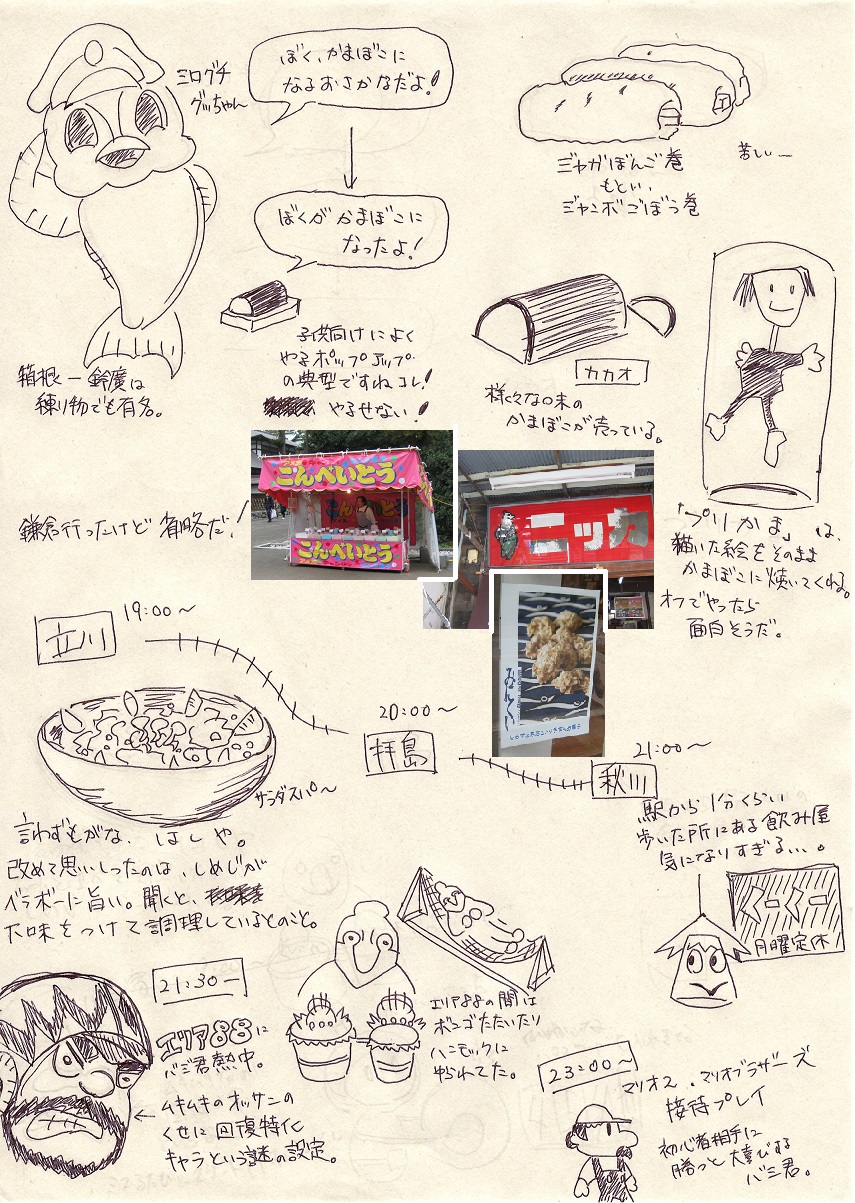 ミログチ
グッちゃん
ぼく、かまぼこに
なるおさかなだよ!
ぼくが かまぼこに
なったよ!
ジャガぼんご巻
もとい、
ジャンボごぼう巻
苦しい—
箱根ー鈴廣は
練り物でも有名。
子供向けによく
やるポップアップ
の典型ですねコレ!
やるせない!
カカオ
様々な味の
かまぼこが売っている。
「プリかま」は、
描いた絵をそのまま
かまぼこに焼いてくれる。
オフでやったら
面白そうだ。
鎌倉行ったけど省略だ!
こんぺいとう
こんぺいとう
こんぺいとう
ニッカ
みんくい
立川
19:00~
20:00~
拝島
21:00~
秋川
サンダスパ~
言わずもがな、はしや。
改めて思いしったのは、しめじが
ベラボーに旨い。聞くと、
下味をつけて調理しているとのこと。
駅から1分くらい
歩いた所にある飲み屋
気になりすぎる…。
くーくー
月曜定休
21:30ー
エリア88に
バミ君熱中。
←ムキムキのオッサンの
くせに回復特化
キャラという謎の設定。
エリア88の間は
ボンゴたたいたり
ハンモックに
ゆられてた。
23:00~
マリオ2、マリオブラザーズ
接待プレイ
初心者相手に
勝つと大喜びする
バミ君。